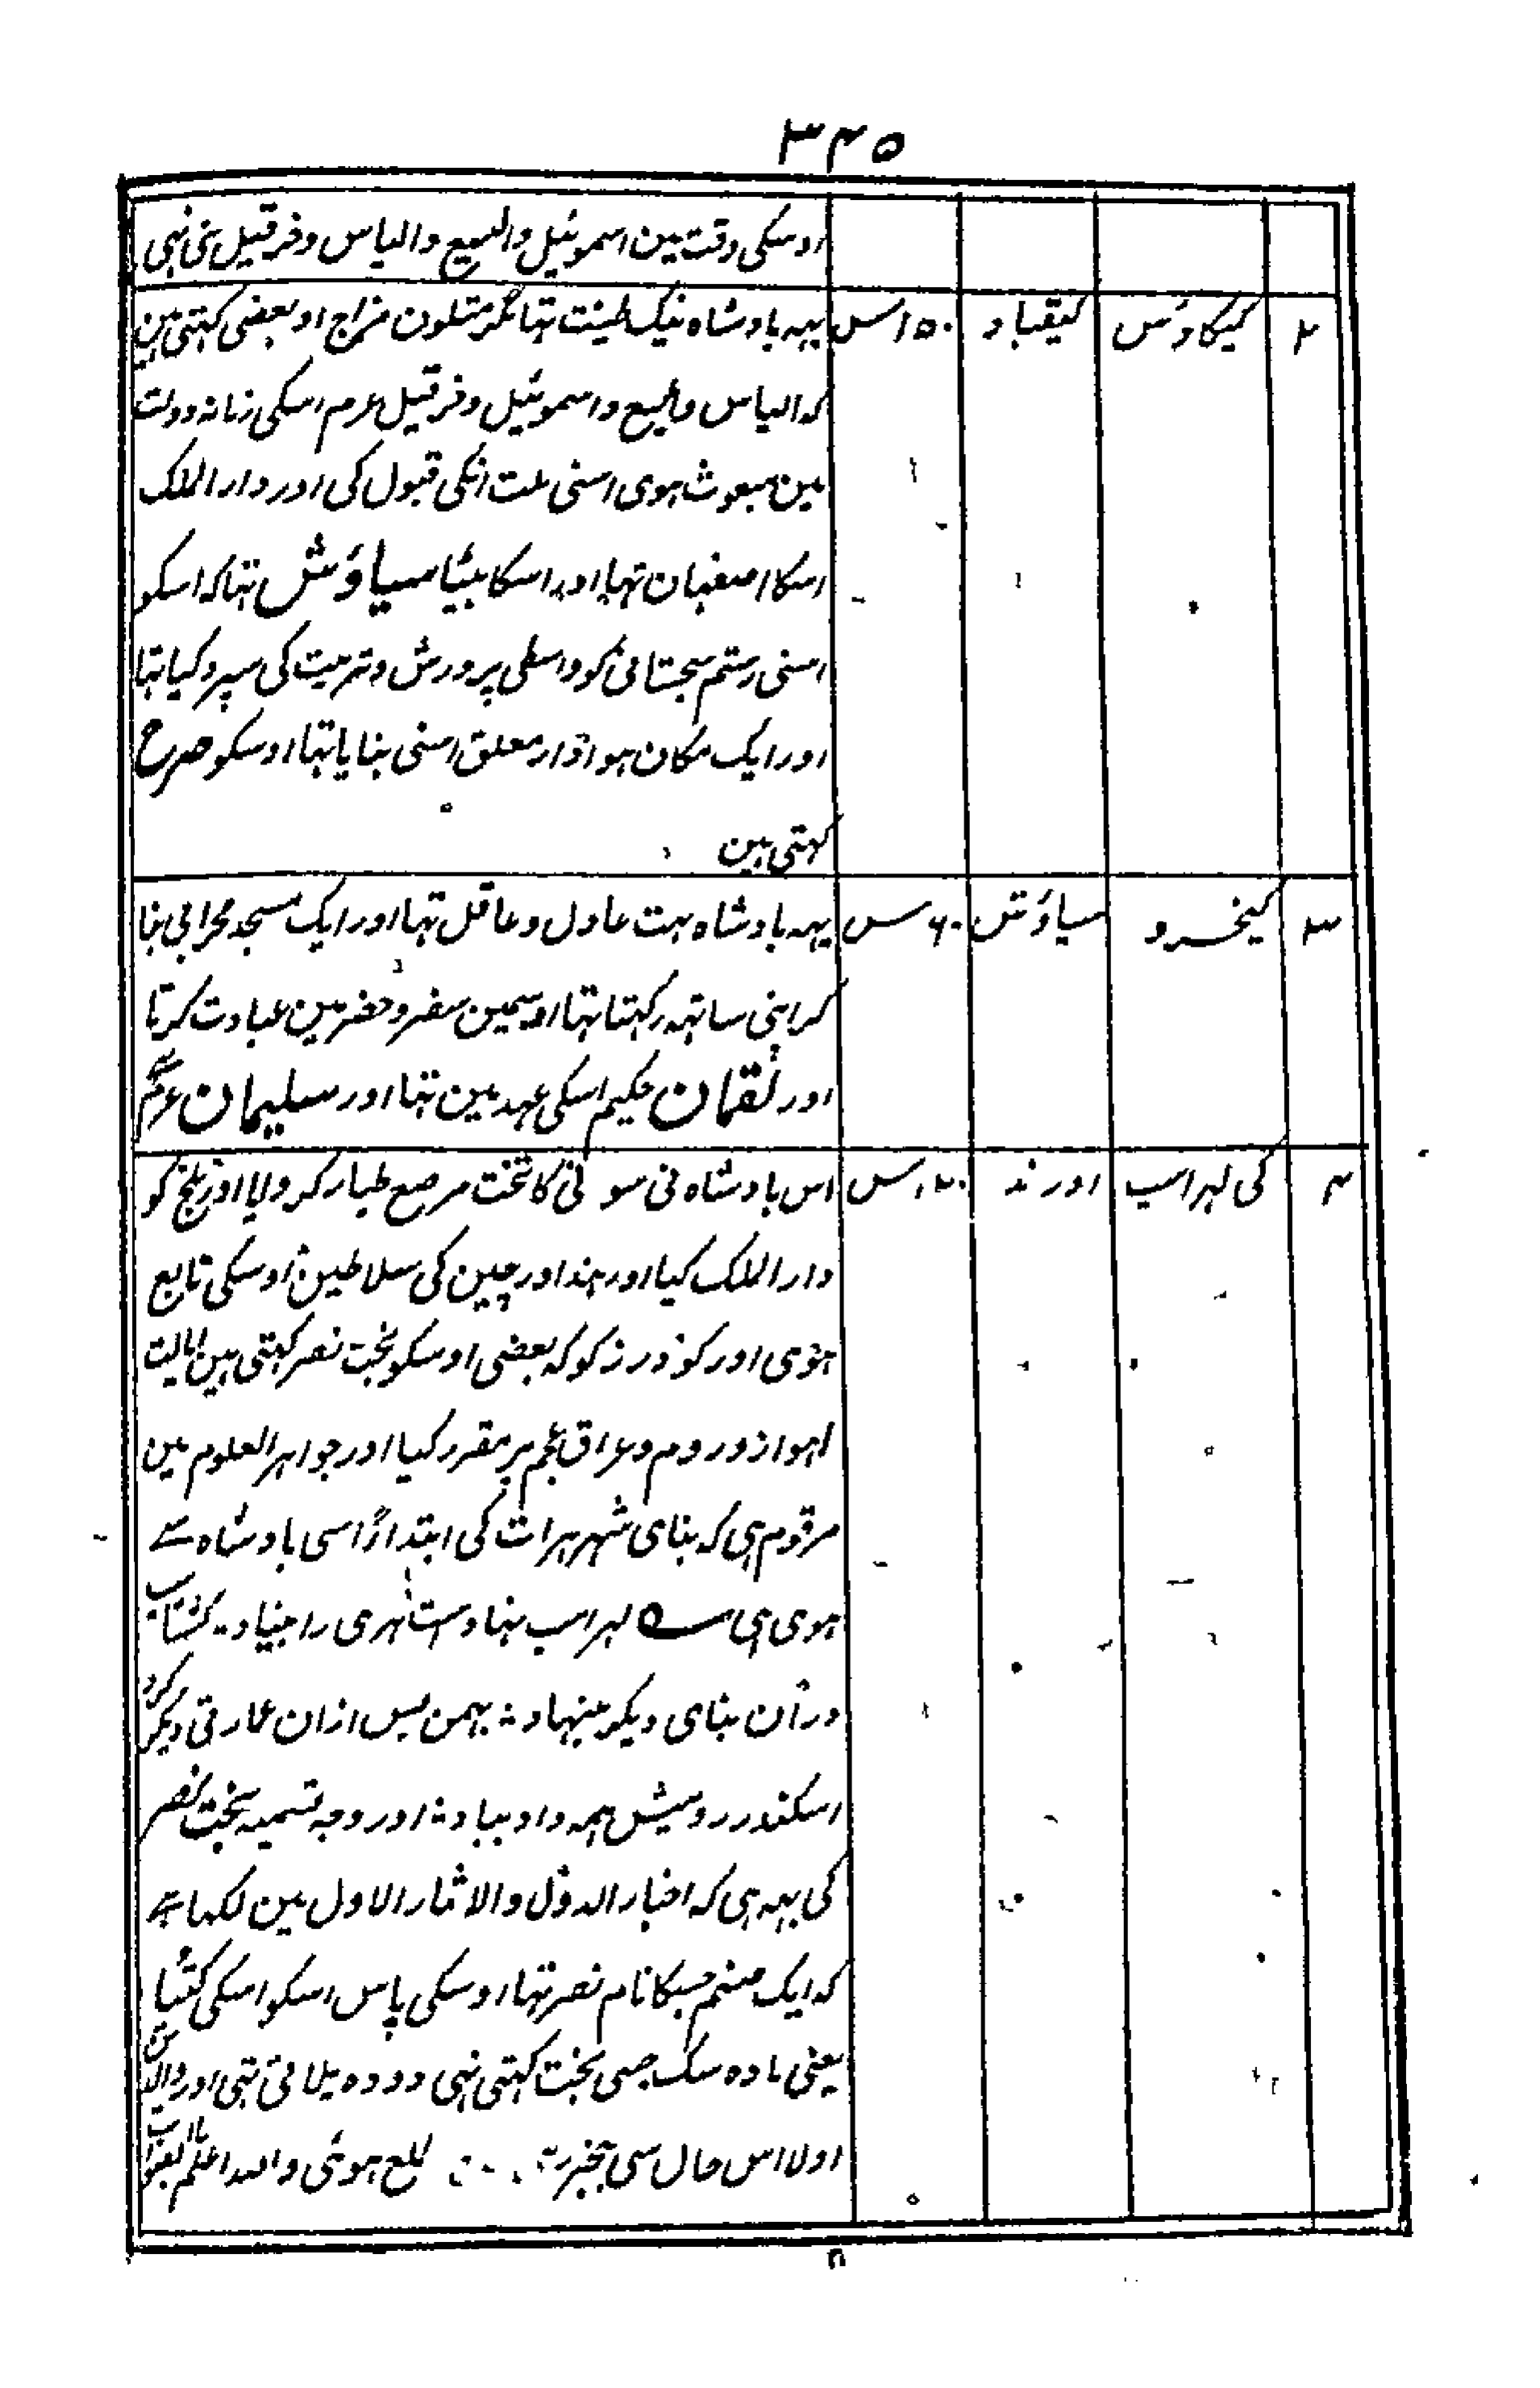 ۳۴۵
اوسکی وقت مین اسموئیل والیسع والیاس وخرقیل بنی نہی
۲ کیکاؤس کیقباد ۱۵۰س یہہ بادشاہ نیک طینت تہا مگر متلون مزاج اور بعضی کہتی ہین
کہ الیاس والیسع واسموئیل وخرقیل عرم اسکی زمانہ دولت
مین مبعوث ہوی اسنی ملت انکی قبول کی اور دار الملک
اسکا اصفہان تہا اور اسکا بیٹا سیاؤش تہا کہ اسکو
اسنی رستم سجستانی کو واسطی پرورش وتربیت کی سپرد کیا تہا
اور ایک مکان ہوادار معلق اسنی بنایا تہا اوسکو صرح
کہتی ہین
۳ کیخسرو سیاؤش ۶۰س یہہ بادشاہ بہت عادل وعاقل تہا اور ایک مسجد محرابی بنا
کر اپنی ساتہہ رکہتا تہا اوسمین سفر وحضر مین عبادت کرتا
اور لقمان حکیم اسکی عہد مین تہا اور سلیمان عرم
۴ کی لہراسب اورند ۱۲۰س اس بادشاہ نی سونی کا تخت مرصع طیار کروایا اور بلخ کو
دار الملک کیا اور ہند اور چین کی سلاطین اوسکی تابع
ہوی اور کوذرز کو کہ بعضی اوسکو بخت نصر کہتی ہین ایالت
اہواز وروم وعراق عجم پر مقرر کیا اور جواہر العلوم مین
مرقوم ہی کہ بنای شہر ہرات کی ابتداءً اسی بادشاہ سے
ہوی ہی لہراسب نہادست ہری را بنیاد گشتاسب
درآن بنای دیگر بنہاد بہمن پس ازان عمارتی دیگر کرد
اسکندر رومیش ہمہ داد بباد اور وجہ تسمیہ بخت نصر
کی یہہ ہی کہ اخبار الدول والاثار الاول مین لکہا ہے
کہ ایک صنم جسکا نام نصر تہا اوسکی پاس اسکو اسکی کتیا
یعنی مادہ سگ جسی بخت کہتی نہی دودہ پلاتی تہی اور
اولا اس حال سی ہوئی واللہ اعلم بالصواب